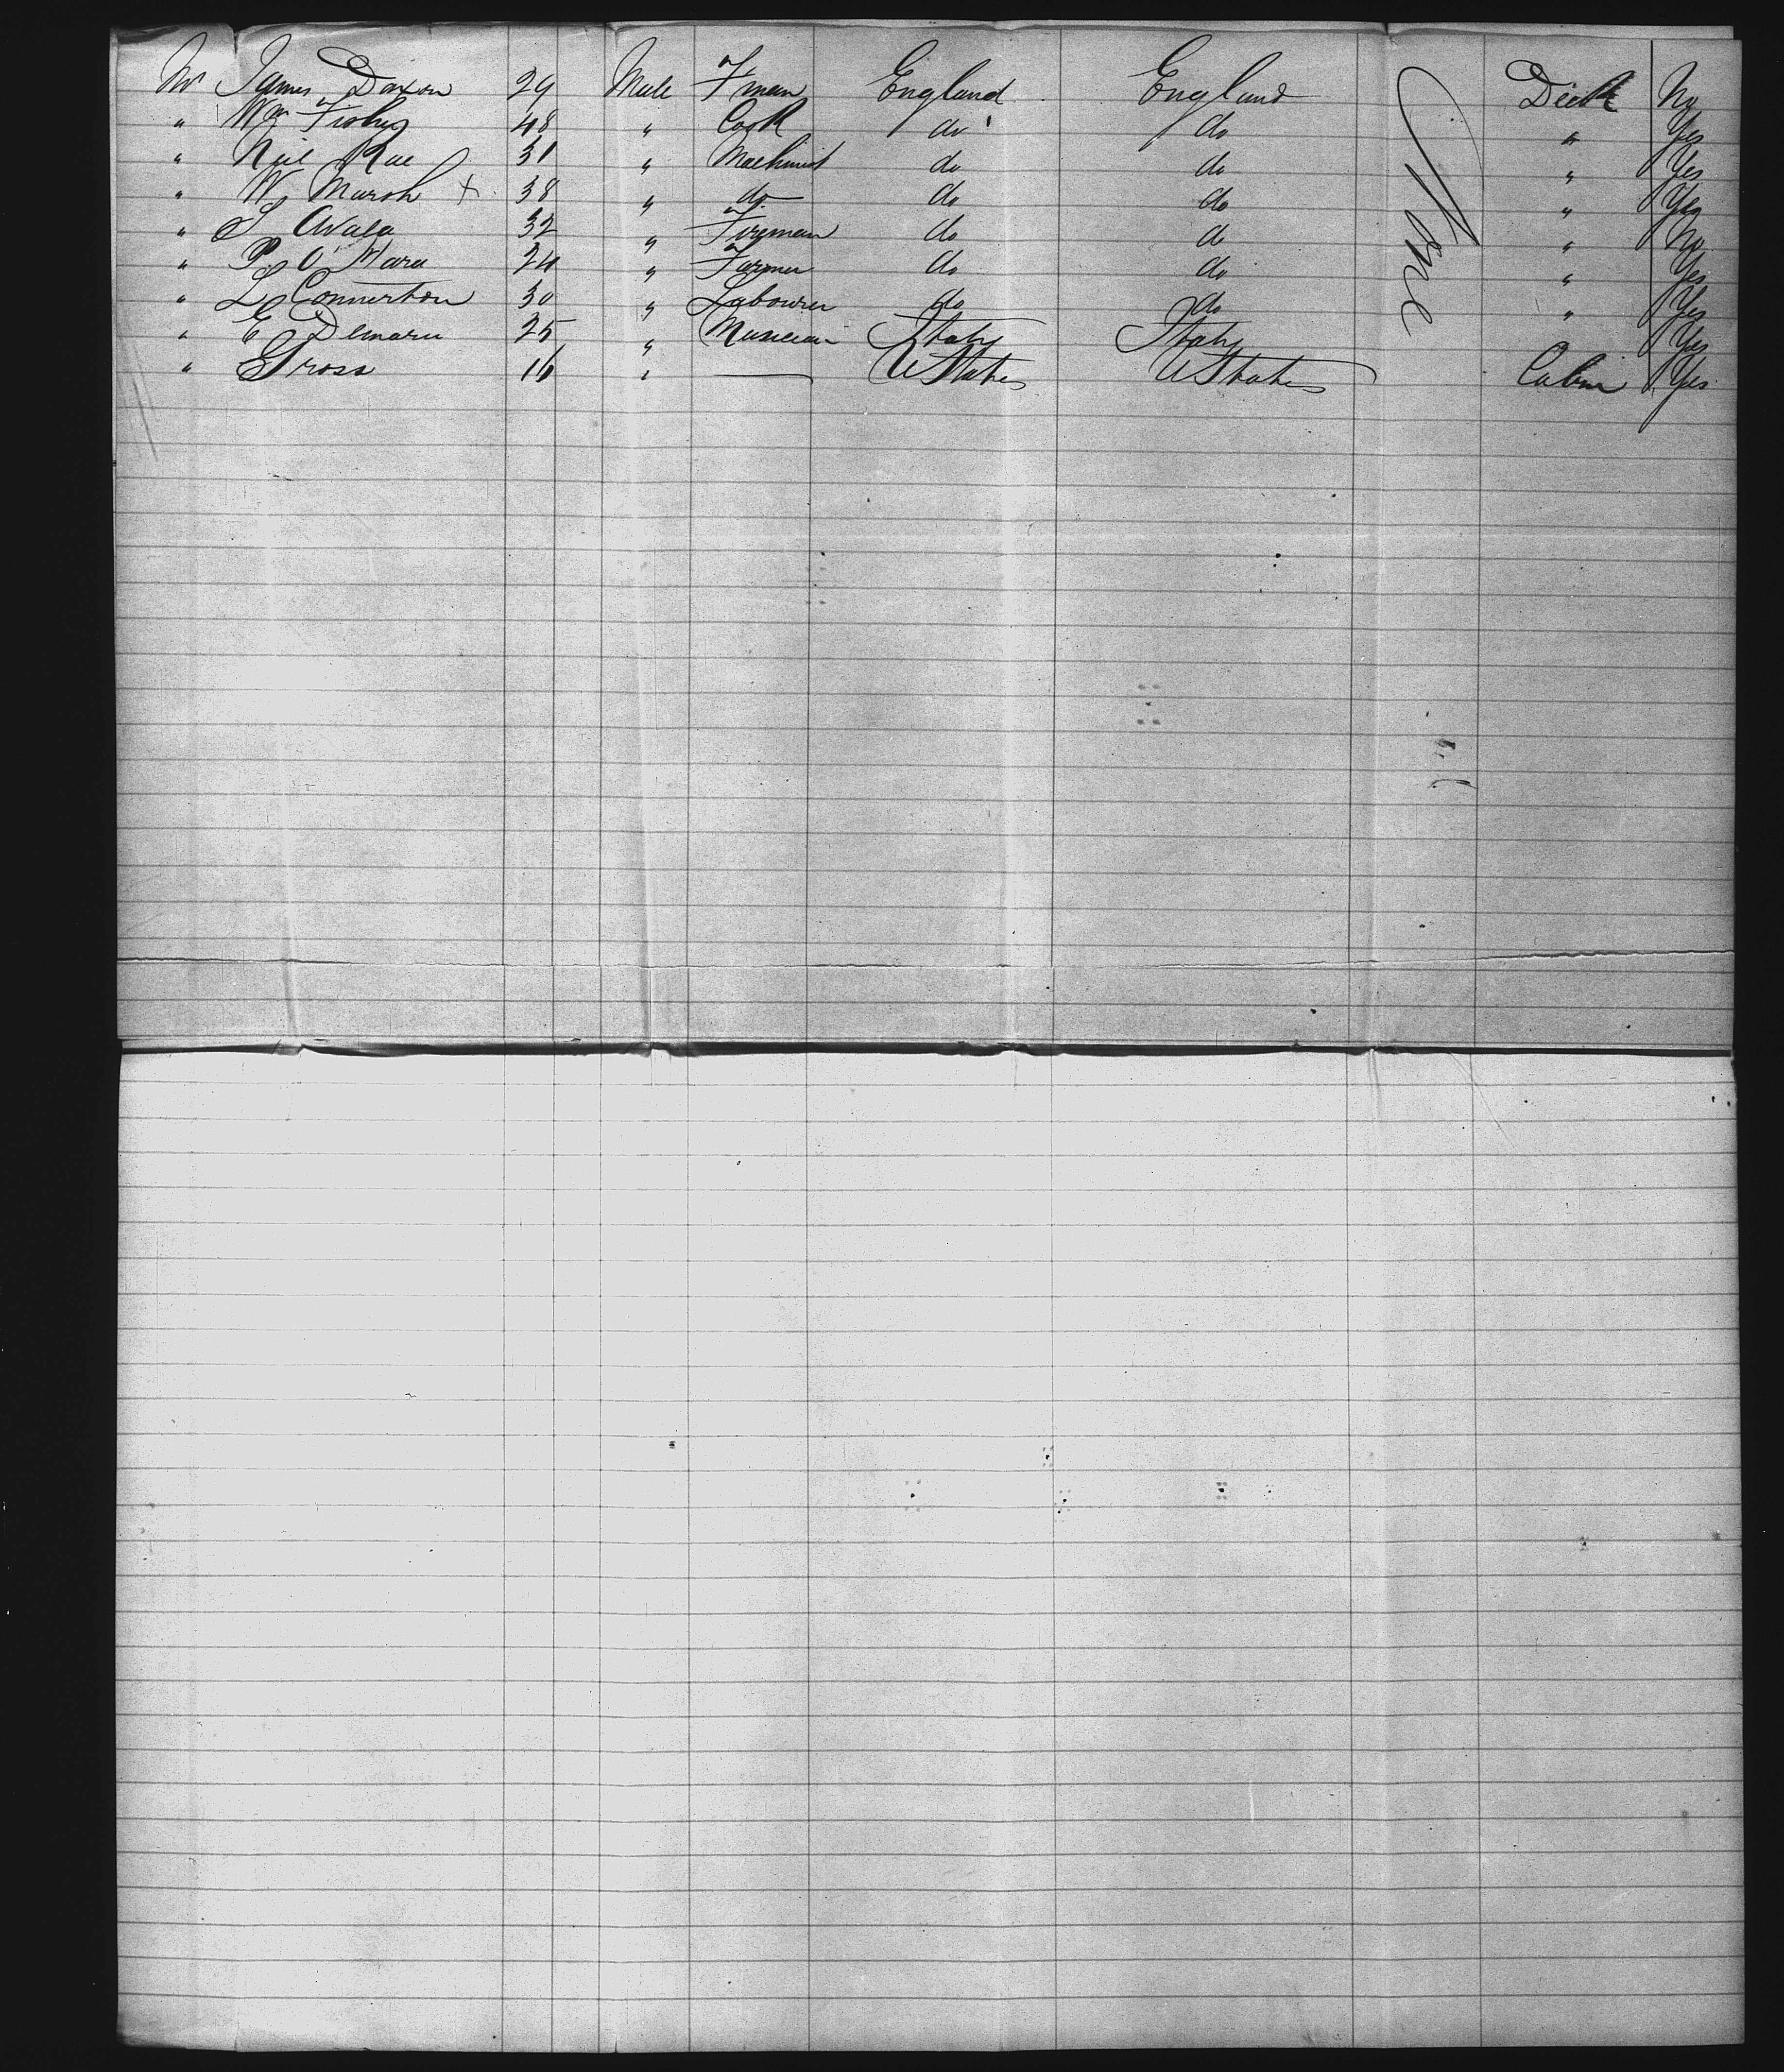 Mr James Daxon 29 Male F'man England England None Deck No
" Wm 48 " Cook do do " Yes
" Neil Rae 31 " Machinist do do " Yes
" W Marsh + 38 " do do do " Yes
" S Wala 32 " Fireman do do " No
" P. O'Mara 24 " Farmer do do " Yes
" L Connerton 30 " Labourer do do " Yes
" E Demaru 25 " Musician Italy Italy Yes
" Gross 16 " — U States U States Cabin Yes